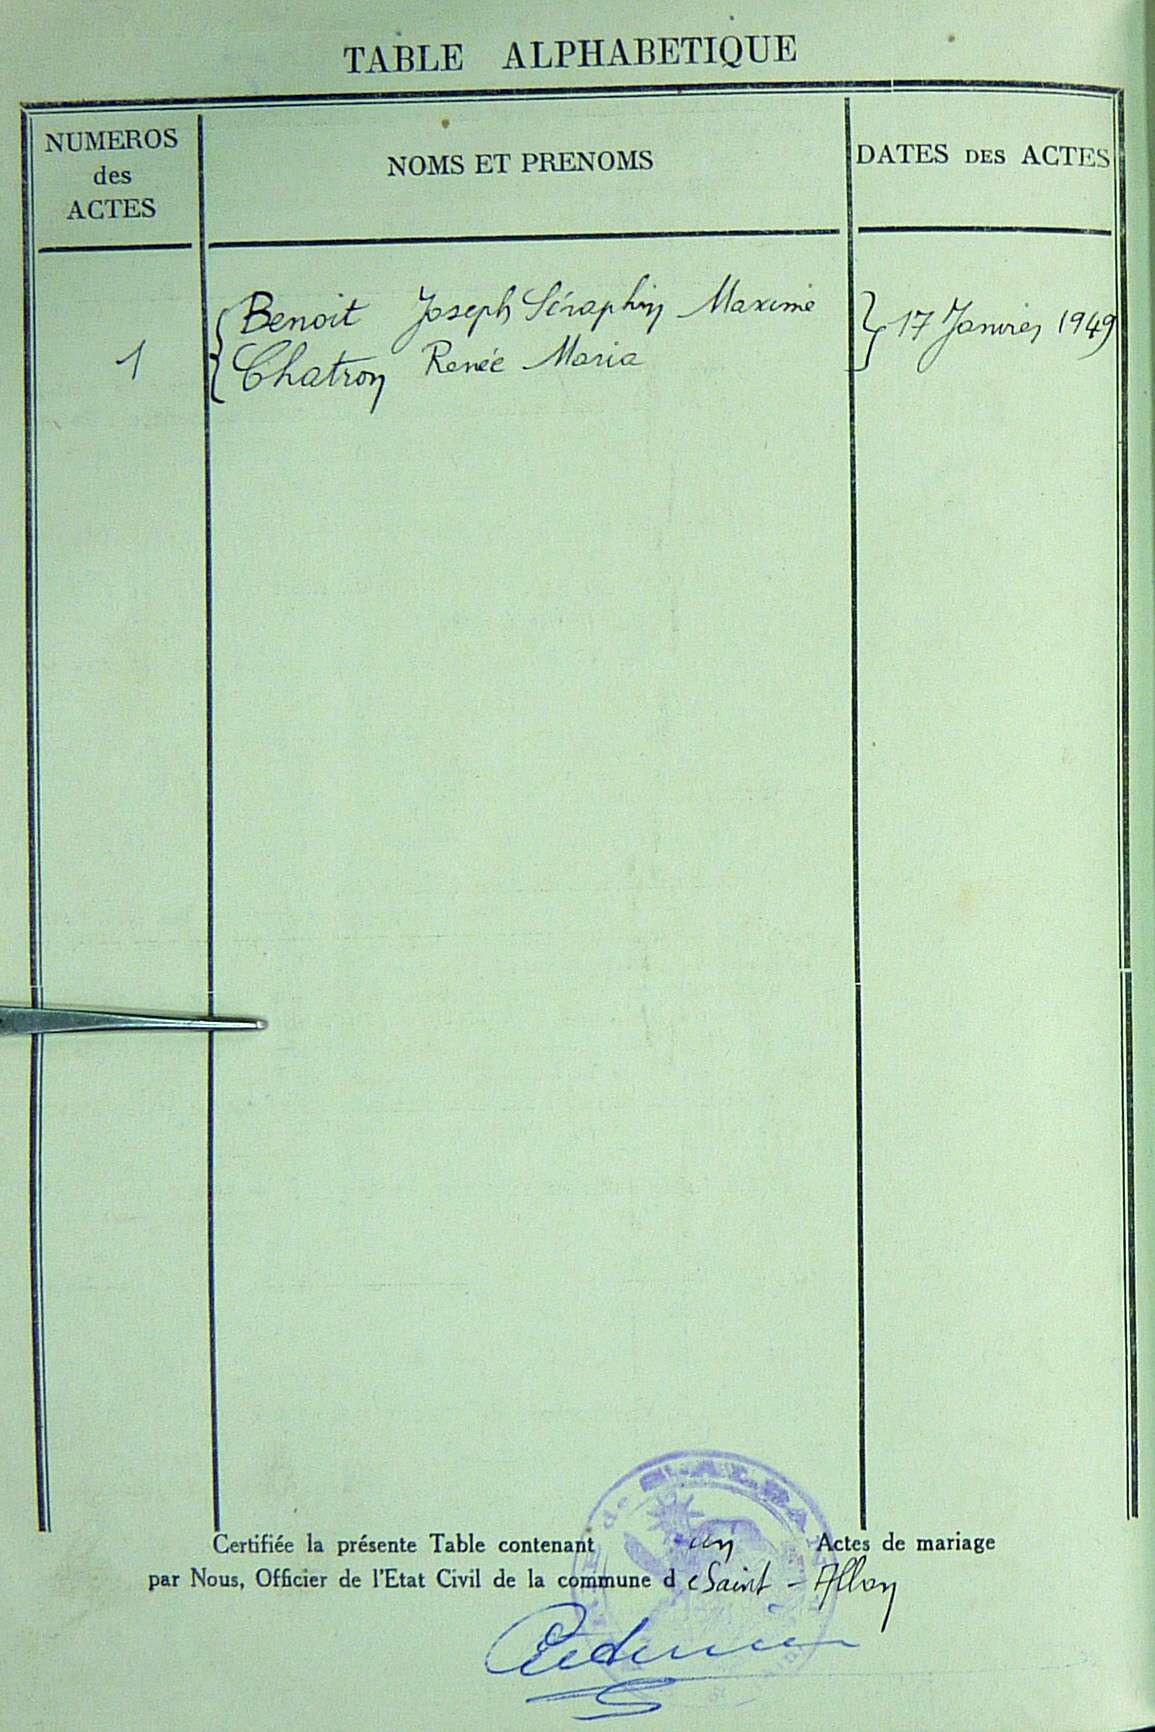 TABLE ALPHABETIQUE
NUMEROS
des
ACTES
NOMS ET PRENOMS
DATES DES ACTES
1
Benoit Joseph Séraphin Maxime
Chatron Renée Maria
17 Janvier 1949
Certifiée la présente Table contenant un Actes de mariage
par Nous, Officier de l'Etat Civil de la commune d e Saint-Allan